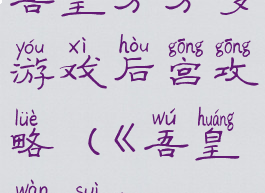 吾皇万万岁
yóu xì hòu gōng gōng
游戏后宫攻
lüè wú huáng
略（《吾皇
wàn suì